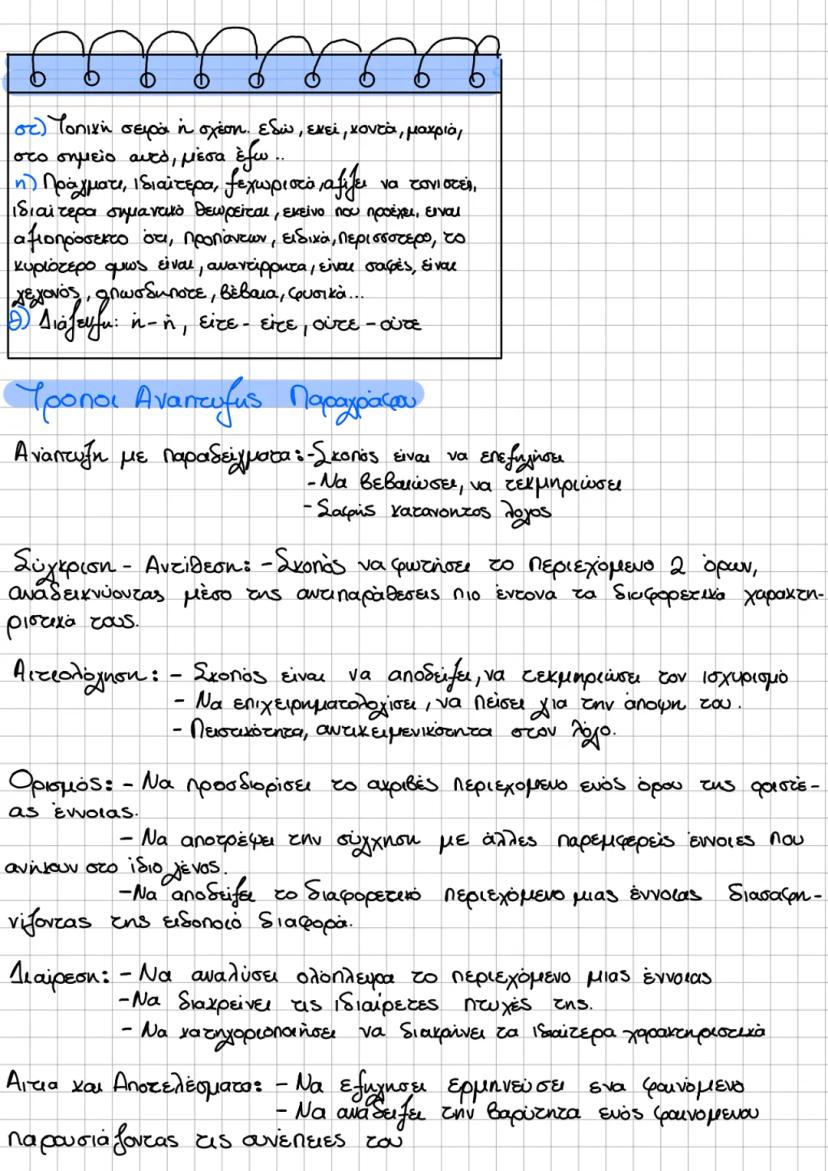 στ) Τοπική σειρά ή σχέση. εδώ, εκεί, κοντά, μακριά,
στο σημείο αυτό, μέσα έξω ..
η) Πράγματι, ιδιαίτερα, ξεχωριστά, αξίζει να τονιστεί,
ιδιαίτερα σημαντικό θεωρείται, εκείνο που προέχει, είναι
αξιοπρόσεκτο ότι, προπάντων, ειδικά, περισσότερο, το
κυριότερο όμως είναι, αναντίρρητα, είναι σαφές, είναι
γεγονός, οπωσδήποτε, βέβαια, φυσικά...
θ) Διάζευξη: ή-ή, είτε-είτε, ούτε-ούτε
Τρόποι Ανάπτυξης Παραγράφου
Ανάπτυξη με παραδείγματα: -Σκοπός είναι να επεξηγήσει
-Να βεβαιώσει, να τεκμηριώσει
-Σαφής κατανοητος λόγος
Σύγκριση - Αντίθεση: -Σκοπός να φωτίσει το περιεχόμενο 2 όρων,
αναδεικνύοντας μέσο της αντιπαράθεσεις πιο έντονα τα διαφορετικά χαρακτη-
ριστικά τους.
Αιτιολόγηση: - Σκοπός είναι να αποδείξει, να τεκμηριώσει τον ισχυρισμό
- Να επιχειρηματολογίσει, να πείσει για την άποψη του.
- Πειστικότητα, αντικειμενικότητα στον λόγο.
Ορισμός: - Να προσδιορίσει το ακριβές περιεχομενο ενός όρου της
ας έννοιας.
- Να αποτρέψει την σύγχηση με άλλες παρεμφερείς έννοιες που
ανήκουν στο ίδιο γένος.
-Να αποδείξει το διαφορετικό περιεχόμενο μιας έννοιας διασαφη-
νίζοντας της ειδοποιό διαφορά.
Διαίρεση: - Να αναλύσει ολόπλευρα το περιεχόμενο μιας έννοιας
-Να διακρείνει τις ιδιαίρετες πτυχές της.
- Να κατηγοριοποιήσει να διακρίνει τα ιδιαίτερα χαρακτηριστικά
Αιτια και Αποτελέσματα: - Να εξηγησει ερμηνεύσει ενα φαινόμενο
- Να αναδείξει την βαρύτητα ενός φαινομενου
παρουσιάζοντας τις συνέπειες του